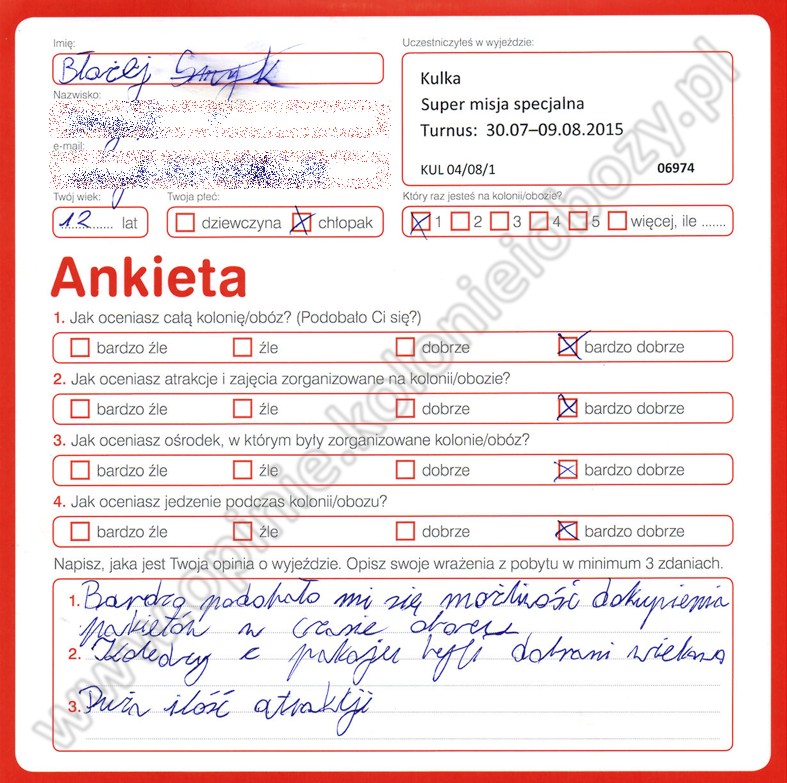 Imię:
Błażej
Nazwisko:
e-mail:
Twój wiek:
12 lat
Twoja płeć:
dziewczyna chłopak
Uczestniczyłeś w wyjeździe:
Kulka
Super misja specjalna
Turnus: 30.07–09.08.2015
KUL 04/08/1 06974
Który raz jesteś na kolonii/obozie?
1 2 3 4 5 więcej, ile .......
Ankieta
1. Jak oceniasz całą kolonię/obóz? (Podobało Ci się?)
bardzo źle źle dobrze bardzo dobrze
2. Jak oceniasz atrakcje i zajęcia zorganizowane na kolonii/obozie?
bardzo źle źle dobrze bardzo dobrze
3. Jak oceniasz ośrodek, w którym były zorganizowane kolonie/obóz?
bardzo źle źle dobrze bardzo dobrze
4. Jak oceniasz jedzenie podczas kolonii/obozu?
bardzo źle źle dobrze bardzo dobrze
Napisz, jaka jest Twoja opinia o wyjeździe. Opisz swoje wrażenia z pobytu w minimum 3 zdaniach.
1. Bardzo podobało mi się możliwość dokupienia
pakietów w czasie obozu
2. Koledzy z pokoju byli dobrani wiekowo
3. Duża ilość atrakcji
www.opinie.kolonieiobozy.pl